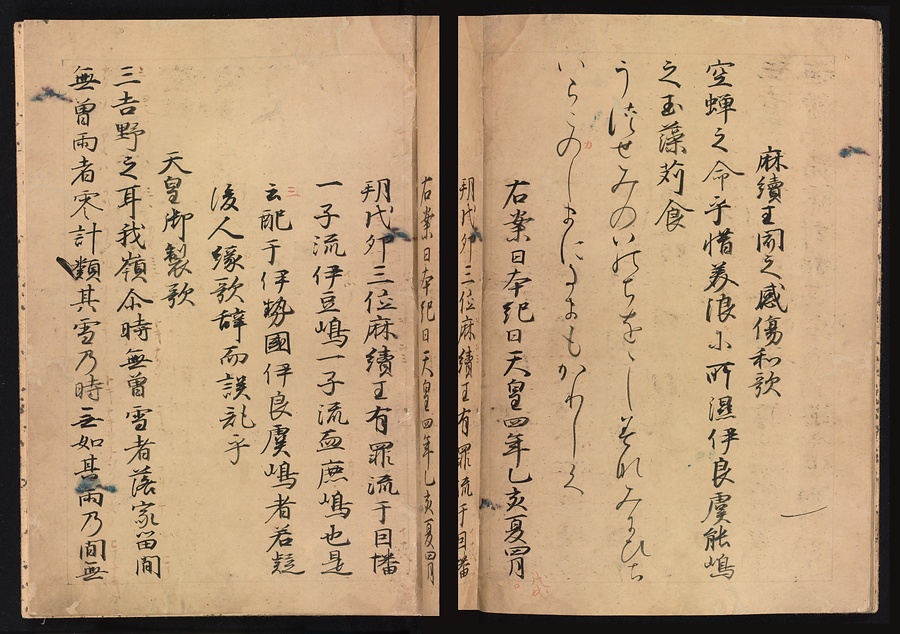 麻續王聞之感傷和歌
空蝉之命乎惜美浪尓所濕伊良虞能嶋
之玉藻苅食
うつせみのいのちをゝし みにひち
いらこのしまにたまもかりしく
右案日本紀曰天皇四年乙亥夏四月
朔戊卯三位麻續王有罪流于因幡
右案日本紀曰天皇四年乙亥夏四月
朔戊卯三位麻續王有罪流于因幡
一子流伊豆嶋一子流血鹿嶋也是
云配于伊勢國伊良虞嶋者若疑
後人縁歌辞而誤乱乎
天皇御製歌
三吉野之耳我嶺尓時無曽雪者落家留間
無曽雨者零計類其雪乃時无如其雨乃間無